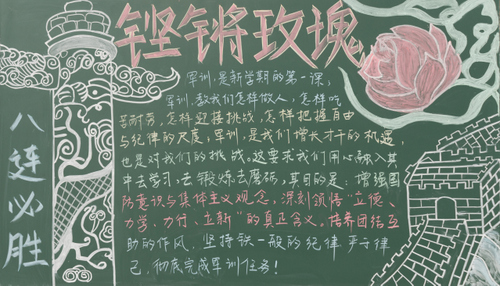 铿锵玫瑰
军训，是新学期的第一课，
军训，教我们怎样做人，怎样吃
苦耐劳，怎样迎接挑战，怎样把握自由
与纪律的尺度，军训，是我们增长才干的机遇，
也是对我们的挑战。这要求我们用心融入其
中去学习，去锻炼去磨砺，其目的是：增强国
防意识与集体主义观念，深刻领悟“立德、
力学、力行、立新”的真正含义。培养团结互
助的作风，坚持铁一般的纪律 严于律
己，彻底完成军训任务！
八连必胜